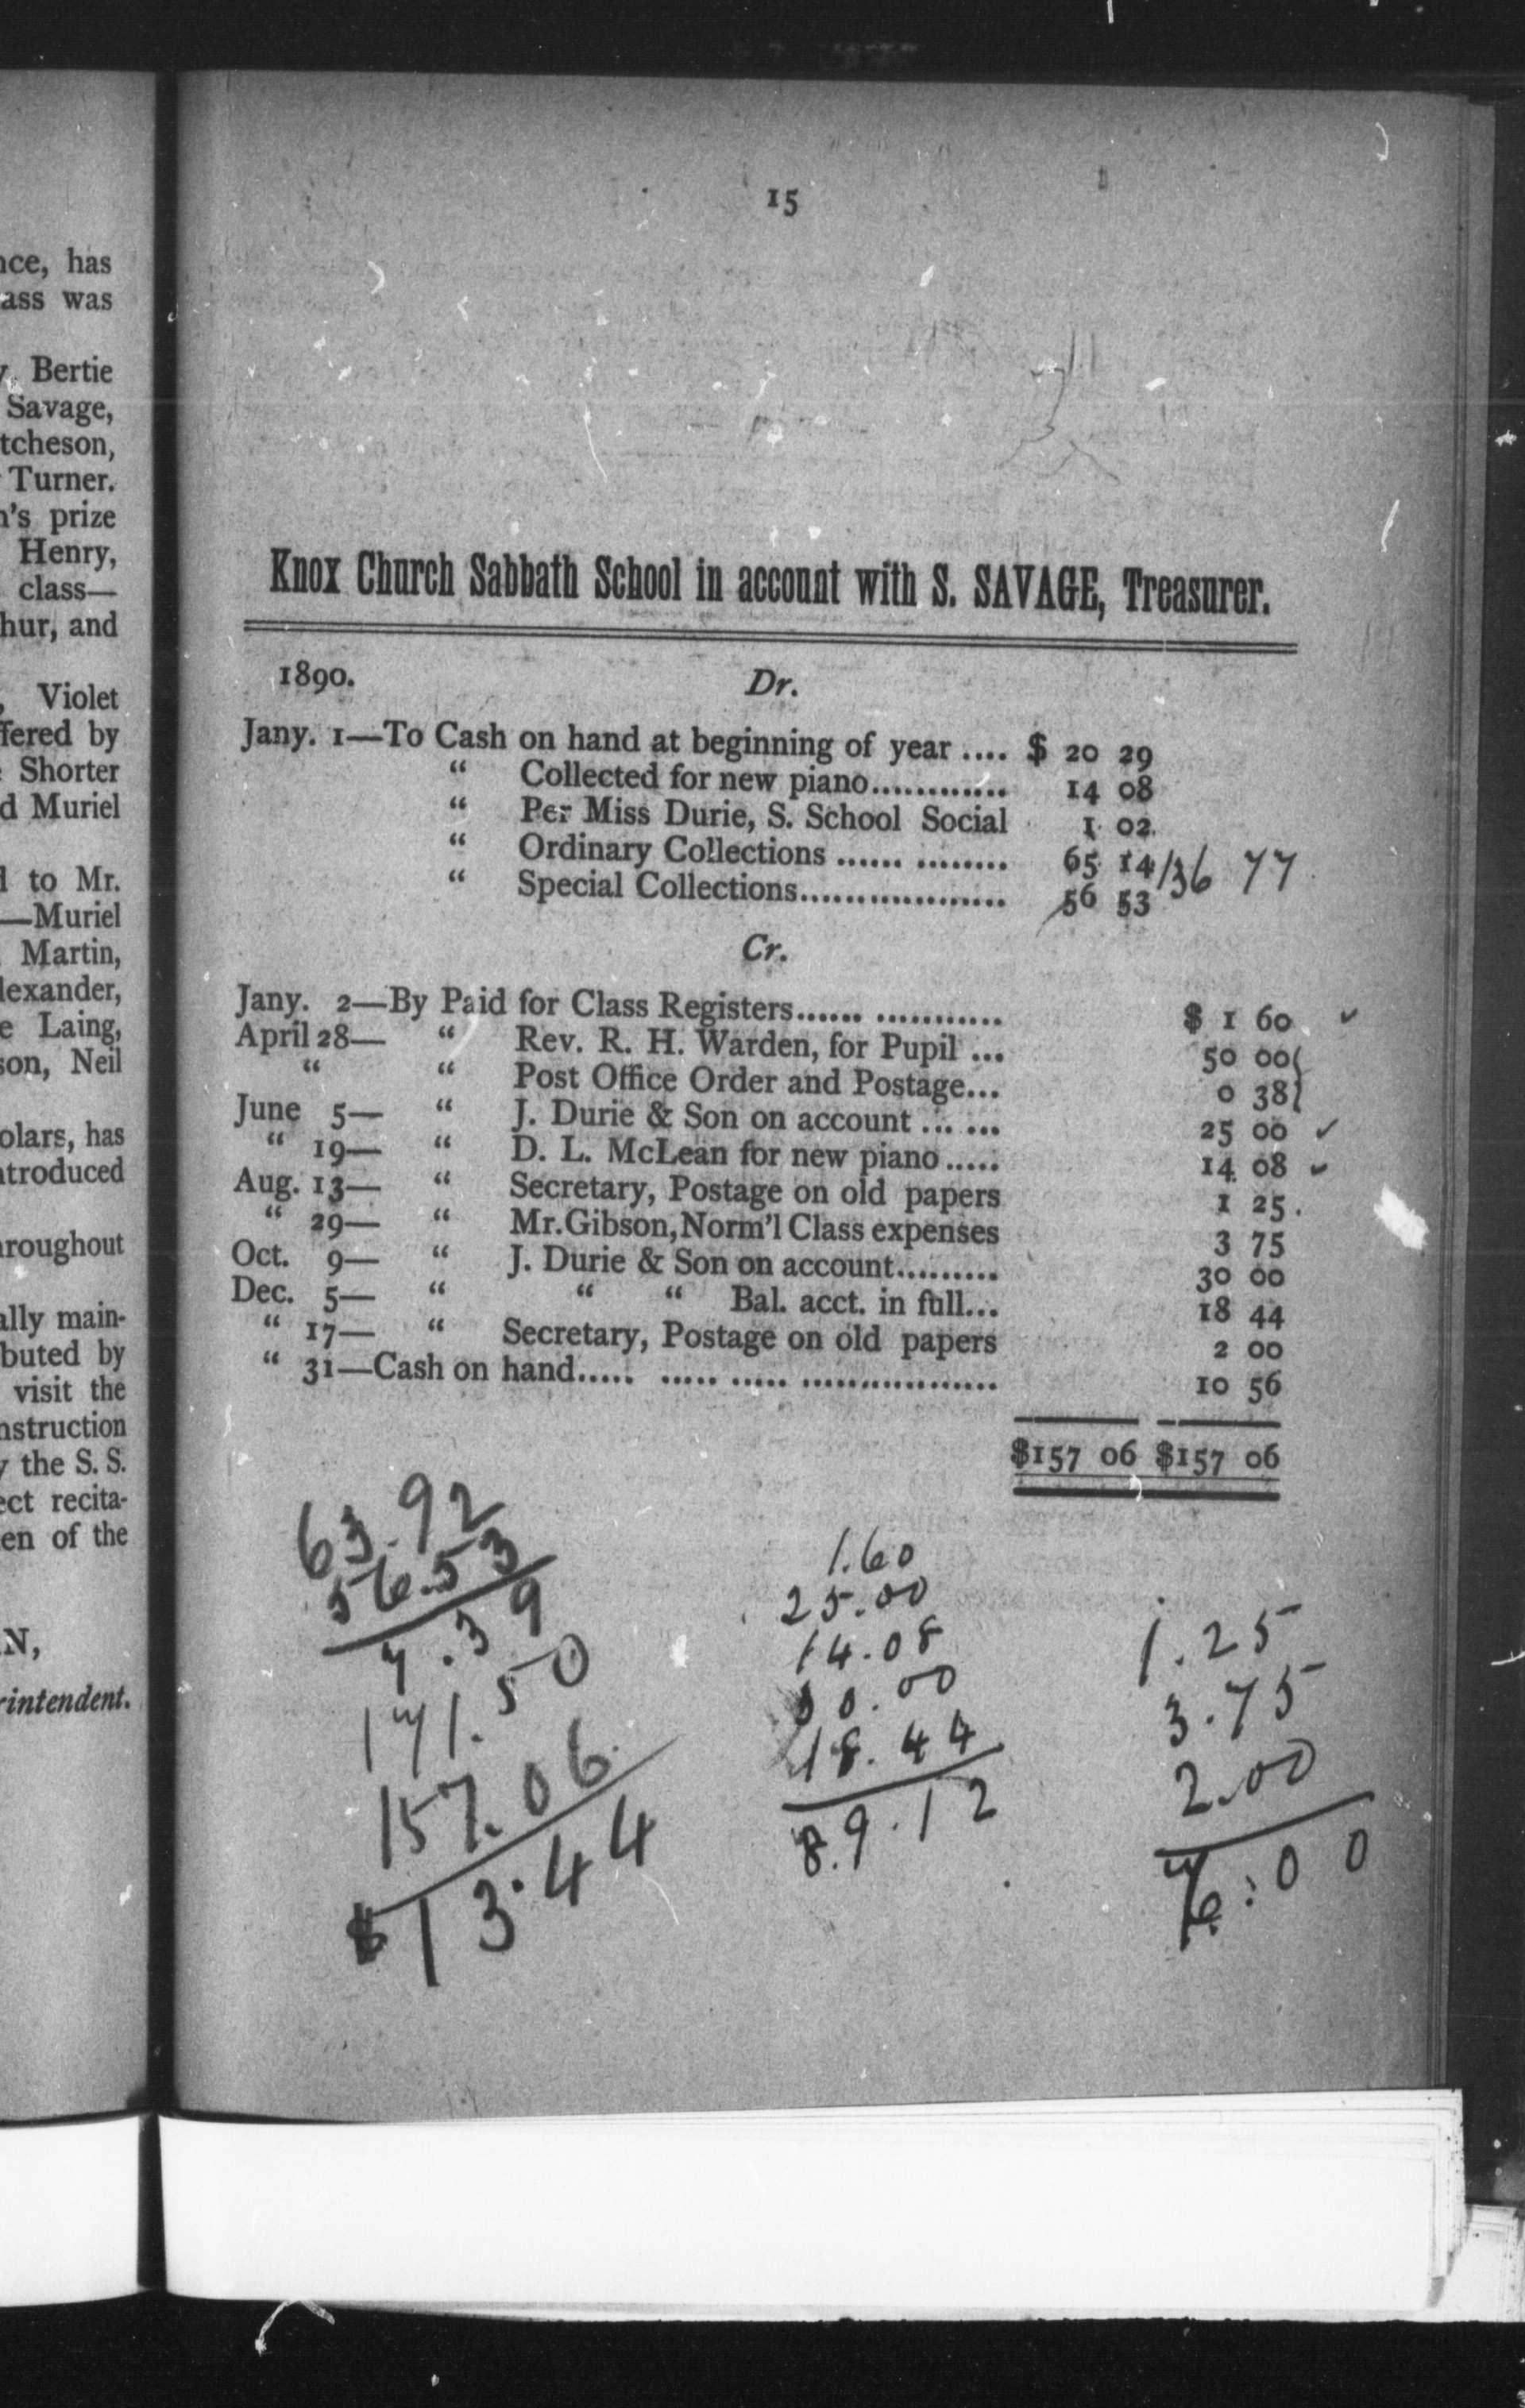 nce, has
ass was
y, Bertie
Savage,
tcheson,
Turner.
n's prize
Henry,
class—
hur, and
, Violet
ffered by
e Shorter
d Muriel
d to Mr.
—Muriel
Martin,
lexander,
e Laing,
son, Neil
olars, has
ntroduced
hroughout
ally main-
buted by
visit the
nstruction
y the S. S.
ect recita-
en of the
N,
rintendent.
15
Knox Church Sabbath School in account with S. SAVAGE, Treasurer.
1890. Dr.
Jany. 1—To Cash on hand at beginning of year .... $ 20 29
“ Collected for new piano............ 14 08
“ Per Miss Durie, S. School Social 1 02
“ Ordinary Collections ...... ......... 65 14 136 77
“ Special Collections................... 56 53
Cr.
Jany. 2—By Paid for Class Registers...... ........... $ 1 60 ✓
April 28— “ Rev. R. H. Warden, for Pupil ... 50 00
“ “ Post Office Order and Postage... 0 38
June 5— “ J. Durie & Son on account ... ... 25 00 ✓
“ 19— “ D. L. McLean for new piano ..... 14 08 ✓
Aug. 13— “ Secretary, Postage on old papers 1 25
“ 29— “ Mr. Gibson, Norm'l Class expenses 3 75
Oct. 9— “ J. Durie & Son on account......... 30 00
Dec. 5— “ “ “ Bal. acct. in full... 18 44
“ 17— “ Secretary, Postage on old papers 2 00
“ 31—Cash on hand..... ..... ..... .................. 10 56
$157 06 $157 06
63.92
56.53
7.39
171.50
157.06
$13.44
1.60
25.00
14.08
30.00
18.44
89.12
1.25
3.75
2.00
:00